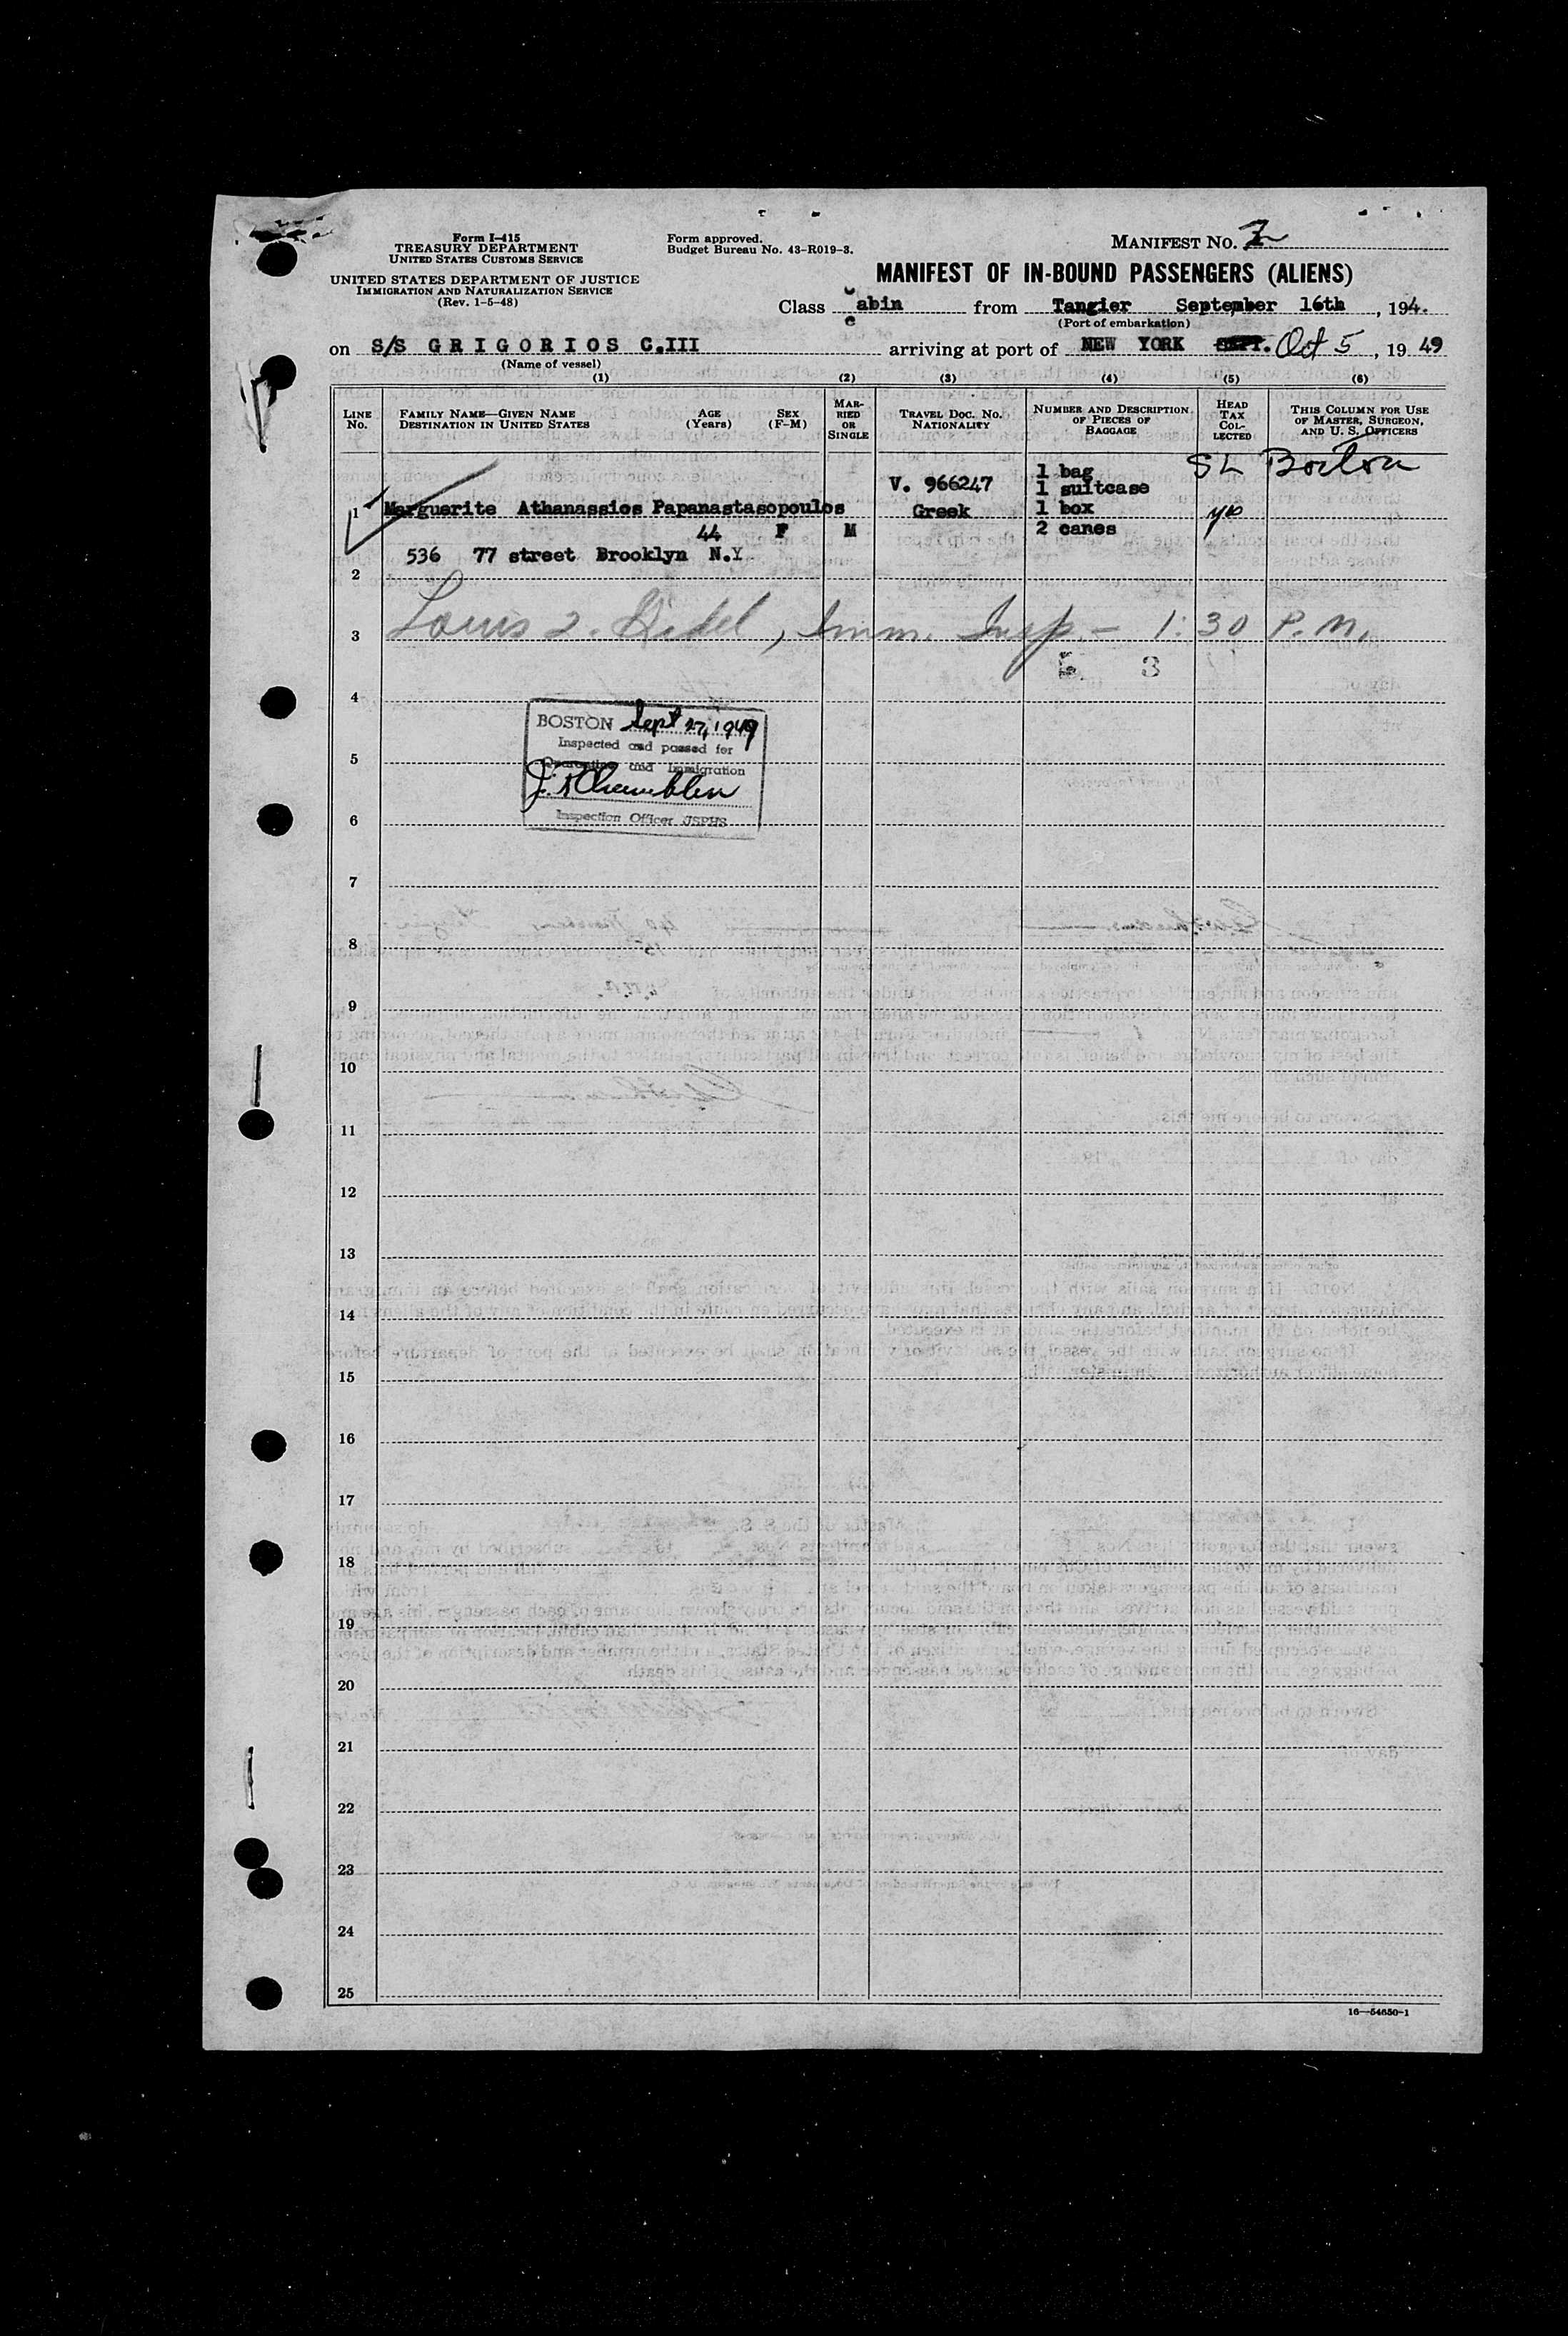 Form I-415
TREASURY DEPARTMENT
UNITED STATES CUSTOMS SERVICE
UNITED STATES DEPARTMENT OF JUSTICE
IMMIGRATION AND NATURALIZATION SERVICE
(Rev. 1-5-48)
Form approved.
Budget Bureau No. 43-R019-3.
MANIFEST NO. 2
MANIFEST OF IN-BOUND PASSENGERS (ALIENS)
Class Cabin from Tangier September 16th, 194.
(Port of embarkation)
on S/S GRIGORIOS C.III arriving at port of NEW YORK SEPT. Oct 5, 19 49
(Name of vessel)
(1) (2) (3) (4) (5) (6)
LINE No.
FAMILY NAME—GIVEN NAME
DESTINATION IN UNITED STATES
AGE (Years)
SEX (F-M)
MARRIED OR SINGLE
TRAVEL DOC. NO.
NATIONALITY
NUMBER AND DESCRIPTION OF PIECES OF BAGGAGE
HEAD TAX COLLECTED
THIS COLUMN FOR USE OF MASTER, SURGEON, AND U. S. OFFICERS
SL Boston
1 Marguerite Athanassios Papanastasopoulos
44 F M
V. 966247
Greek
1 bag
1 suitcase
1 box
2 canes
yes
536 77 street Brooklyn N.Y
2
3 Louis, Imm. Insp. - 1:30 P.M.
3
4
BOSTON Sept 27, 1949
Inspected and passed for
Quarantine and Immigration
Inspection Officer USPHS
5
6
7
8
9
10
11
12
13
14
15
16
17
18
19
20
21
22
23
24
25
16—54650-1